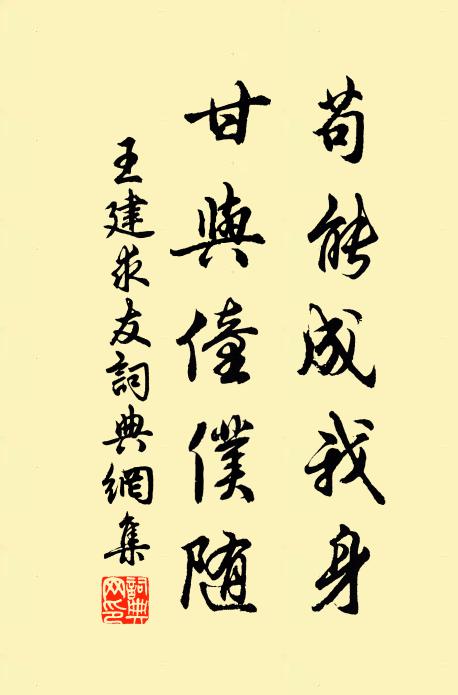 苟能成我身
甘與僮僕随
王建求友詞典網集
詞典網印